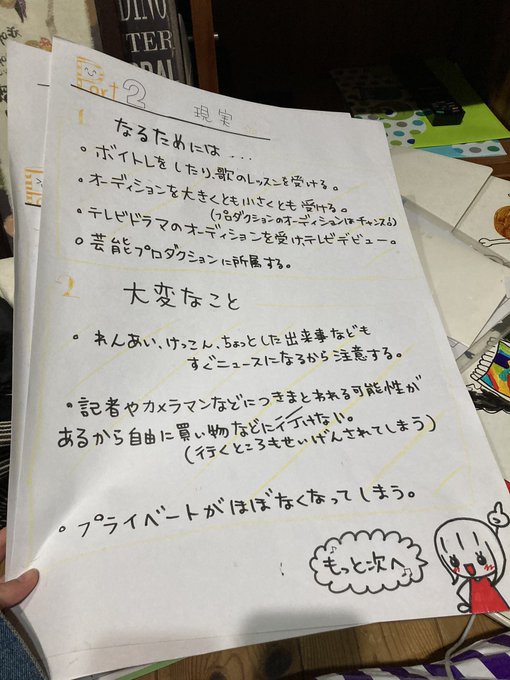 DINO
TER
RAL
Part 2
現実
1
なるためには...
・ボイトレをしたり、歌のレッスンを受ける。
・オーディションを大きくとも小さくとも受ける。
(プロダクションのオーディションはチャンス!)
・テレビドラマのオーディションを受け、テレビデビュー。
・芸能プロダクションに所属する。
2
大変なこと
・れんあい、けっこん、ちょっとした出来事なども
すぐニュースになるから注意する。
・記者やカメラマンなどにつきまとわれる可能性が
あるから自由に買い物などに行けない。
(行くところもせいげんされてしまう)
・プライベートがほぼなくなってしまう。
もっと次へ